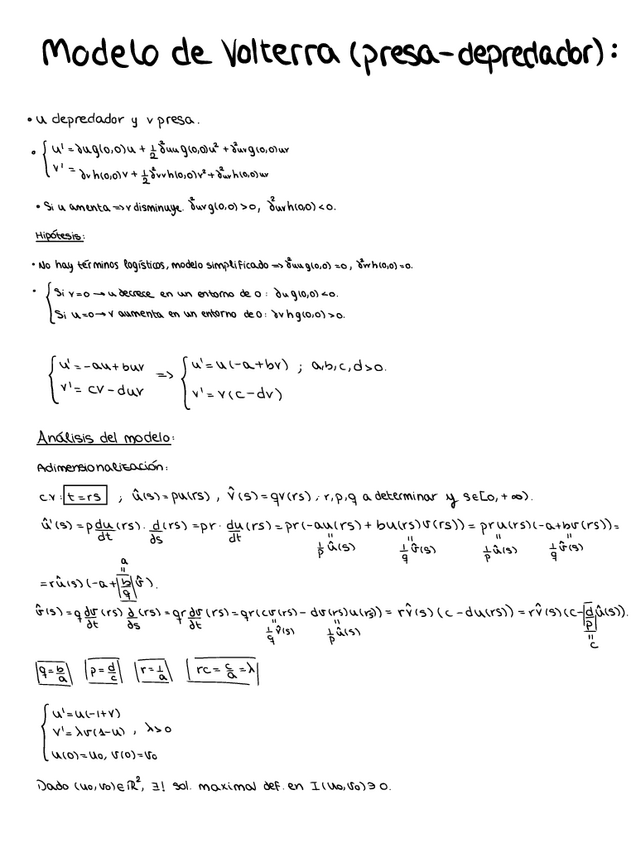 Modelo de Volterra (presa-depredador):
• u depredador y v presa.
• { u' = ∂ug(0,0)u + 1/2 ∂²uu g(0,0)u² + ∂²uv g(0,0)uv
v' = ∂vh(0,0)v + 1/2 ∂²vv h(0,0)v² + ∂²uv h(0,0)uv
• Si u amenta => v disminuye. ∂²uv g(0,0) > 0, ∂²uv h(0,0) < 0.
Hipótesis:
• No hay términos logísticos, modelo simplificado => ∂²uu g(0,0) = 0, ∂²vv h(0,0) = 0.
• { Si v=0 → u decrece en un entorno de 0: ∂u g(0,0) < 0.
Si u=0 → v aumenta en un entorno de 0: ∂v h g(0,0) > 0.
{ u' = -au + buv => { u' = u(-a + bv) ; a,b,c,d > 0.
v' = cv - duv v' = v(c - dv)
Análisis del modelo:
Adimensionalización:
c.v: t = rs ; û(s) = pu(rs), v̂(s) = qv(rs), r,p,q a determinar y s∈[0,+∞).
û'(s) = p du/dt (rs) · d/ds (rs) = pr · du/dt (rs) = pr(-au(rs) + bu(rs)v(rs)) = pru(rs)(-a+bv(rs)) =
1/p û(s) 1/q v̂(s) 1/p û(s) 1/q v̂(s)
a
= rû(s)(-a + b/q v̂).
v̂(s) = q dv/dt (rs) d/ds (rs) = qr dv/dt (rs) = qr(cv(rs) - dv(rs)u(rs)) = rv̂(s)(c - du(rs)) = rv̂(s)(c - d/p û(s)).
1/q v̂(s) 1/p û(s) c
q = b/a p = d/c r = 1/a rc = c/a = λ
{ u' = u(-1+v)
v' = λv(1-u) , λ > 0
u(0) = u₀, v(0) = v₀
Dado (u₀,v₀) ∈ ℝ², ∃! sol. maximal def. en I(u₀,v₀) ∋ 0.